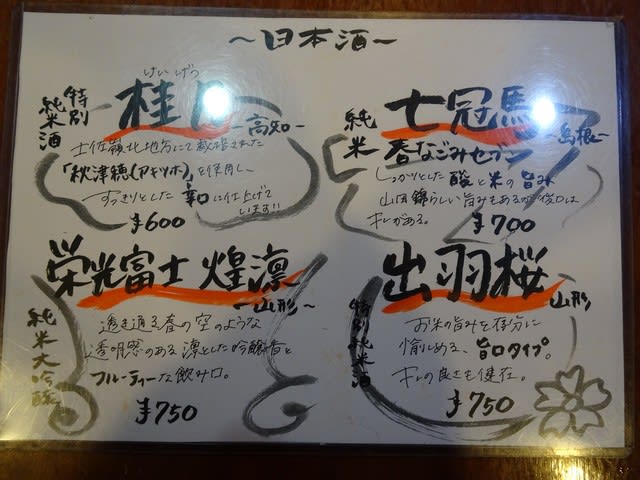 ～日本酒～
特別
純米酒
けいげつ
桂月
～高知～
土佐嶺北地方にて栽培された
「秋津穂(アキツホ)」を使用し、
すっきりとした辛口に仕上げて
います!!
¥600
純米
七冠馬
～島根～
春なごみセブン
しっかりとした酸と米の旨み
山田錦らしい旨みもあるが後口は
キレがある。
¥700
栄光冨士 煌凛
～山形～
純米大吟醸
透き通る春の空のような
透明感のある凛とした吟醸香と
フルーティーな飲み口。
¥750
出羽桜
山形
特別純米酒
お米の旨みを存分に
愉しめる、旨口タイプ。
キレの良さも健在。
¥750